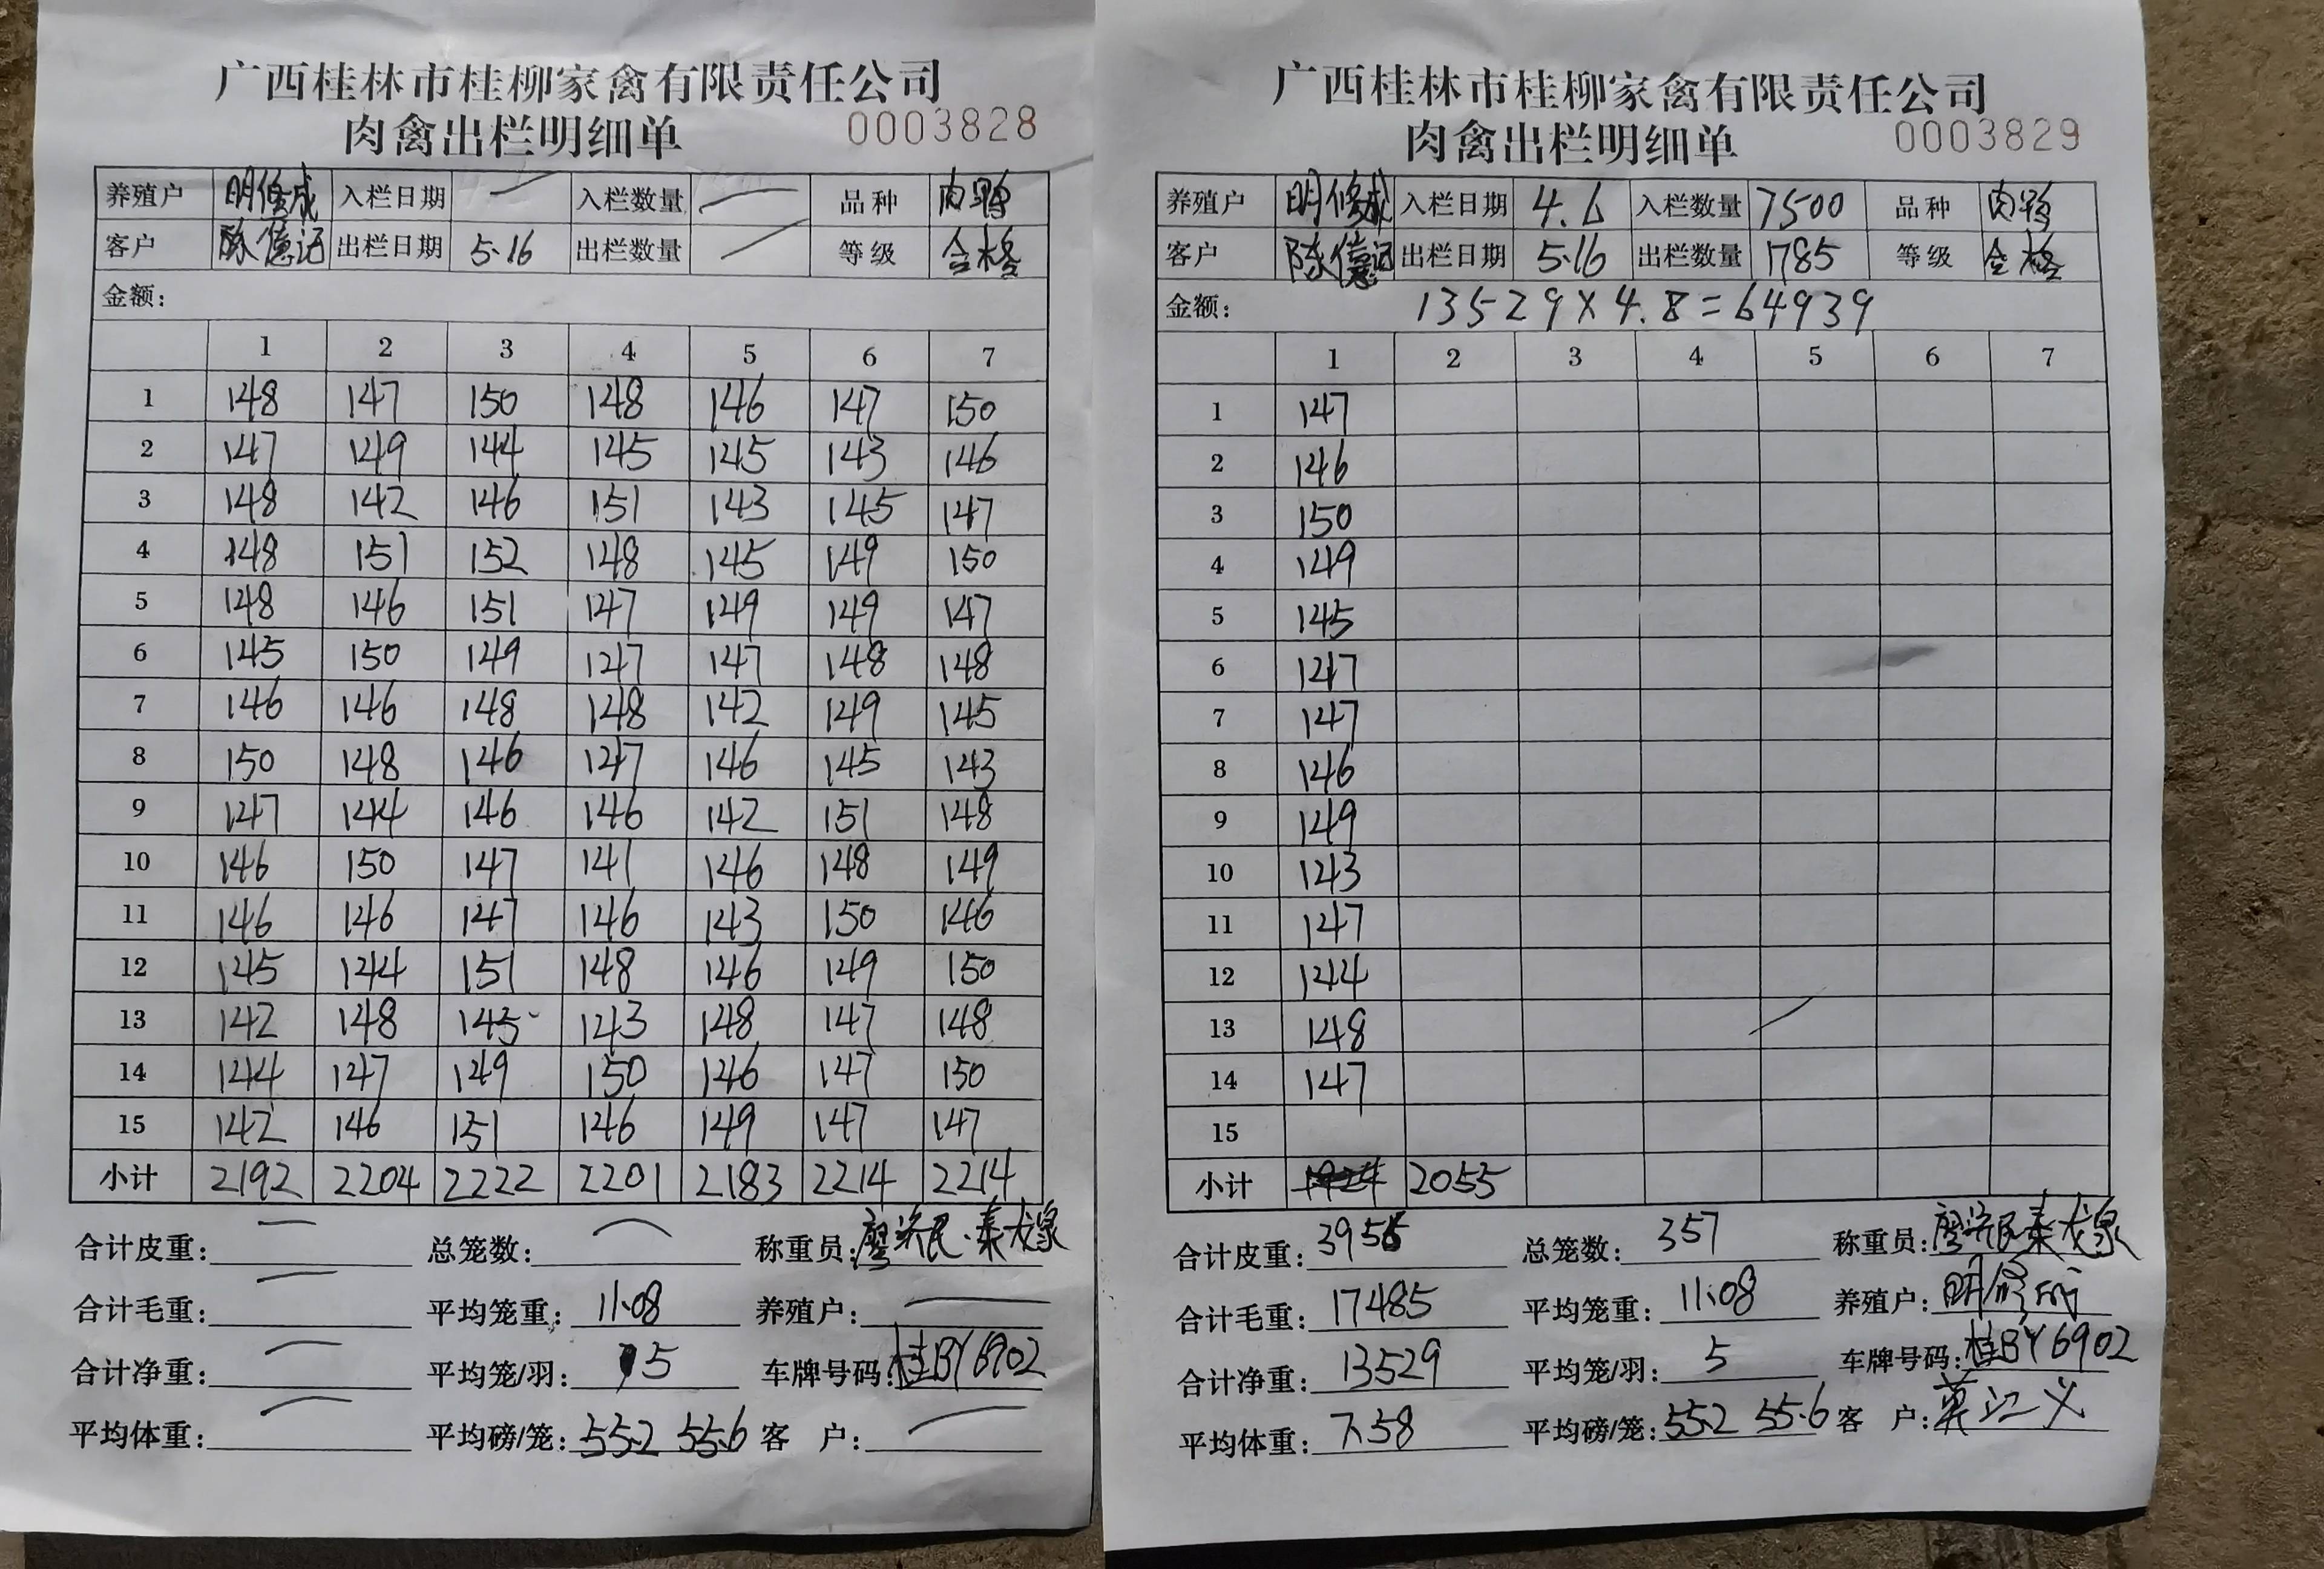 广西桂林市桂柳家禽有限责任公司
肉禽出栏明细单 0003828
养殖户 明修成 入栏日期 入栏数量 品种 肉鸭
客户 陈億记 出栏日期 5.16 出栏数量 等级 合格
金额:
1 2 3 4 5 6 7
1 148 147 150 148 146 147 150
2 147 149 144 145 145 143 146
3 148 142 146 151 143 145 147
4 148 151 152 148 145 149 150
5 148 146 151 147 149 149 147
6 145 150 149 147 147 148 148
7 146 146 148 148 142 149 145
8 150 148 146 147 146 145 143
9 147 144 146 146 142 151 148
10 146 150 147 141 146 148 149
11 146 146 147 146 143 150 146
12 145 144 151 148 146 149 150
13 142 148 145 143 148 147 148
14 144 147 149 150 146 147 150
15 142 146 151 146 149 147 147
小计 2192 2204 2222 2201 2183 2214 2214
合计皮重: 总笼数: 称重员:
合计毛重: 平均笼重: 11.08 养殖户:
合计净重: 平均笼/羽: 5 车牌号码: 桂BY6902
平均体重: 平均磅/笼: 55.2 55.6 客 户:
广西桂林市桂柳家禽有限责任公司
肉禽出栏明细单 0003829
养殖户 明修成 入栏日期 4.6 入栏数量 7500 品种 肉鸭
客户 陈億记 出栏日期 5.16 出栏数量 1785 等级 合格
金额: 13529×4.8=64939
1 2 3 4 5 6 7
1 147
2 146
3 150
4 149
5 145
6 147
7 147
8 146
9 149
10 143
11 147
12 144
13 148
14 147
15
小计 2055
合计皮重: 3956 总笼数: 357 称重员:
合计毛重: 17485 平均笼重: 11.08 养殖户:
合计净重: 13529 平均笼/羽: 5 车牌号码: 桂BY6902
平均体重: 7.58 平均磅/笼: 55.2 55.6 客 户: 莫江义